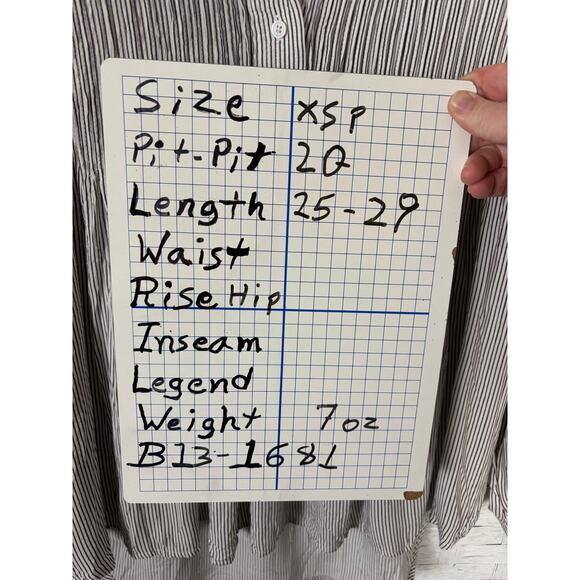 Size XSP
Pit-Pit 20
Length 25-29
Waist
Rise Hip
Inseam
Legend
Weight 7oz
B13-1681